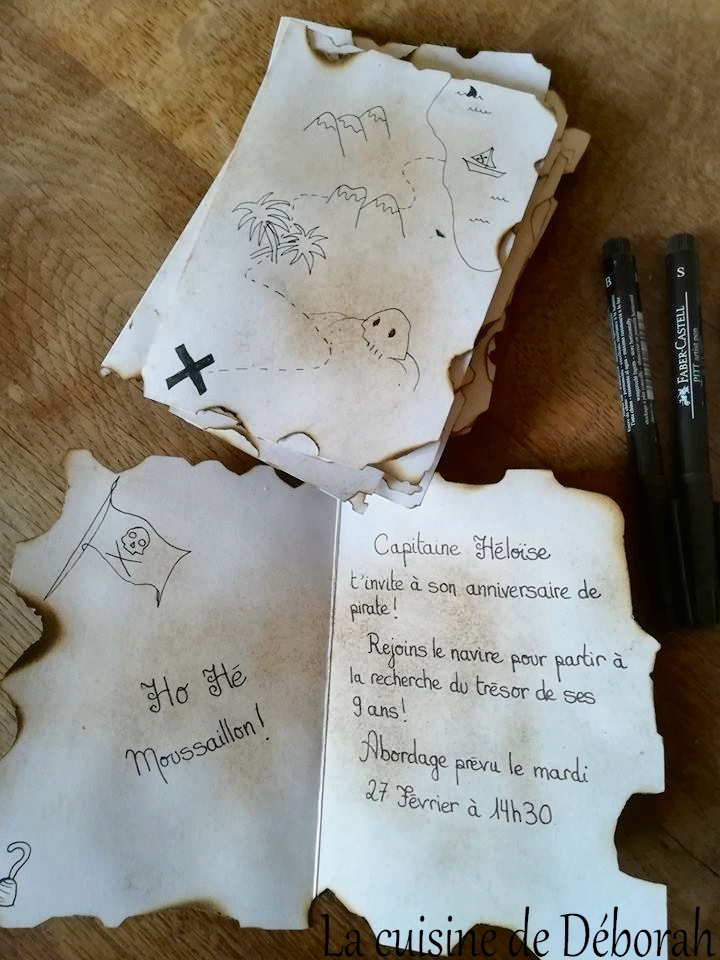 B
S
FABER-CASTELL
PITT artist pen
Ho Hé
Moussaillon!
Capitaine Héloïse
t'invite à son anniversaire de
pirate!
Rejoins le navire pour partir à
la recherche du trésor de ses
9 ans!
Abordage prévu le mardi
27 Février à 14h30.
La cuisine de Déborah